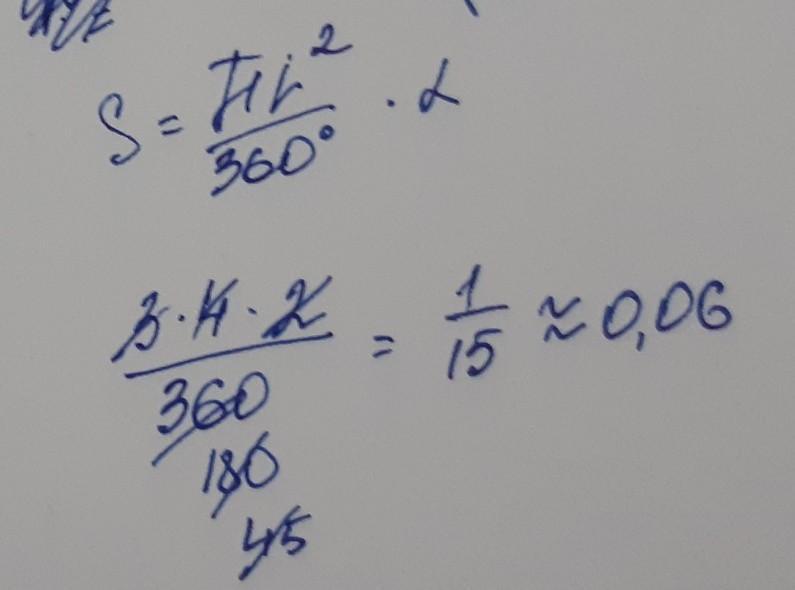 S = πr² / 360° · α
3 · 4 · 2 / 360 = 1/15 ≈ 0,06
180
45